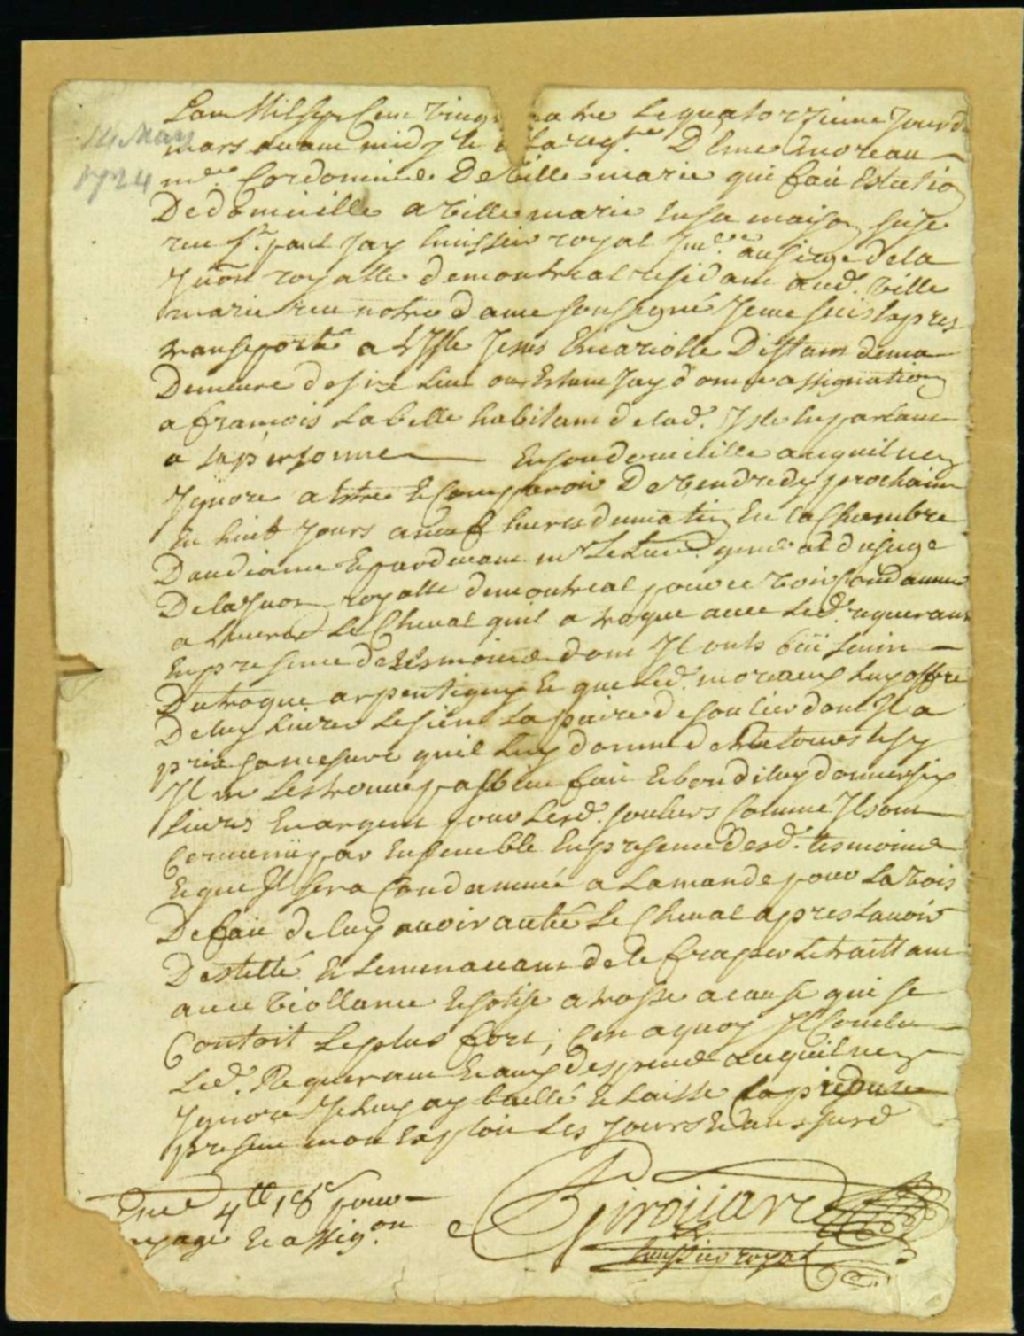 Lan Mil Sept Cent Vingt quatre Le quatorzieme Jour de
14 Mars
1724
mars avant midy a la reqte. D'Eme moreau
me Cordonnier De Ville marie qui fait Eslection
De domicille a Ville marie En sa maison sise
rue St. paul Jay huissier royal Jmle. au siege de la
Jurion royalle de montreal residant aud. Ville
marie rue notre dame soussigné Jeme suis Expres
transporté a L'Isle Jesus Distant de ma
Demeure de six lieues ou Estant Jay donné assignation
a francois Labelle habitant de lad. Isle En parlant
a sa personne En son domicille a ce quil nen
Jgnore a Estre Et Comparoir De Vendredy prochain
En huit Jours a neuf heures du matin En la Chambre
Daudiance Et pardevant mr Le Lieut. general du siege
De la Juron royalle de montreal pour se Voir Condamner
a Livrer Le Cheval quil a troqué avec Led. requerant
En presence de tesmoins dont Ils ont bû Levin
Du troque a repentigny Et que Led. moreau Luy offre
De luy Livrer Le sien La paire de souliers dont Il a
pris la mesure quil Luy donne de Retours Et sy
Il ne Les trouve pas bien fait Et bon diluy donner six
Livres En argent pour Lesd. souliers Comme Ils ont
Convenu par Ensemble En presence Desd. tesmoins
Et que Il sera Condamné a Lamande pour La Vois
De fait de luy avoir autté Le Cheval apres Lavoir
Destellé Et Le menacant de le fraper Le traittant
avec Viollance Et sotise a cause qui se
Contoit Le plus fort; Cen a quoy Il Conclu
Led. Requerant Et aux despens a ce quil nen
Jgnore Je luy ay baillé Et Laissé Copie du
present mon Exploit Les Jours Et an susd
4lt 18s pour
voyage Et assigon
Giroüard
huissier royal